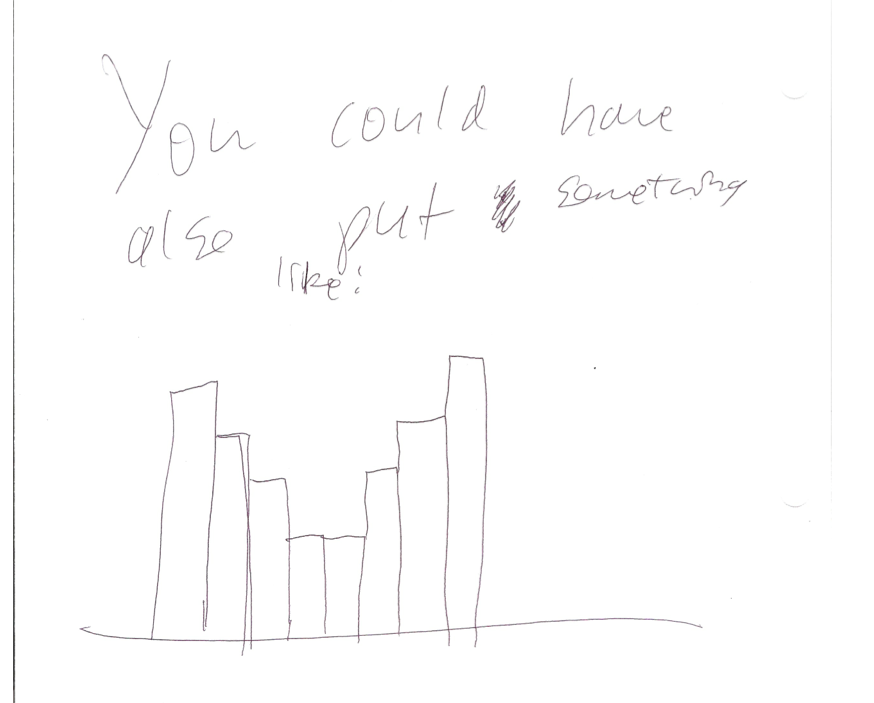 You could have
also put something
like: